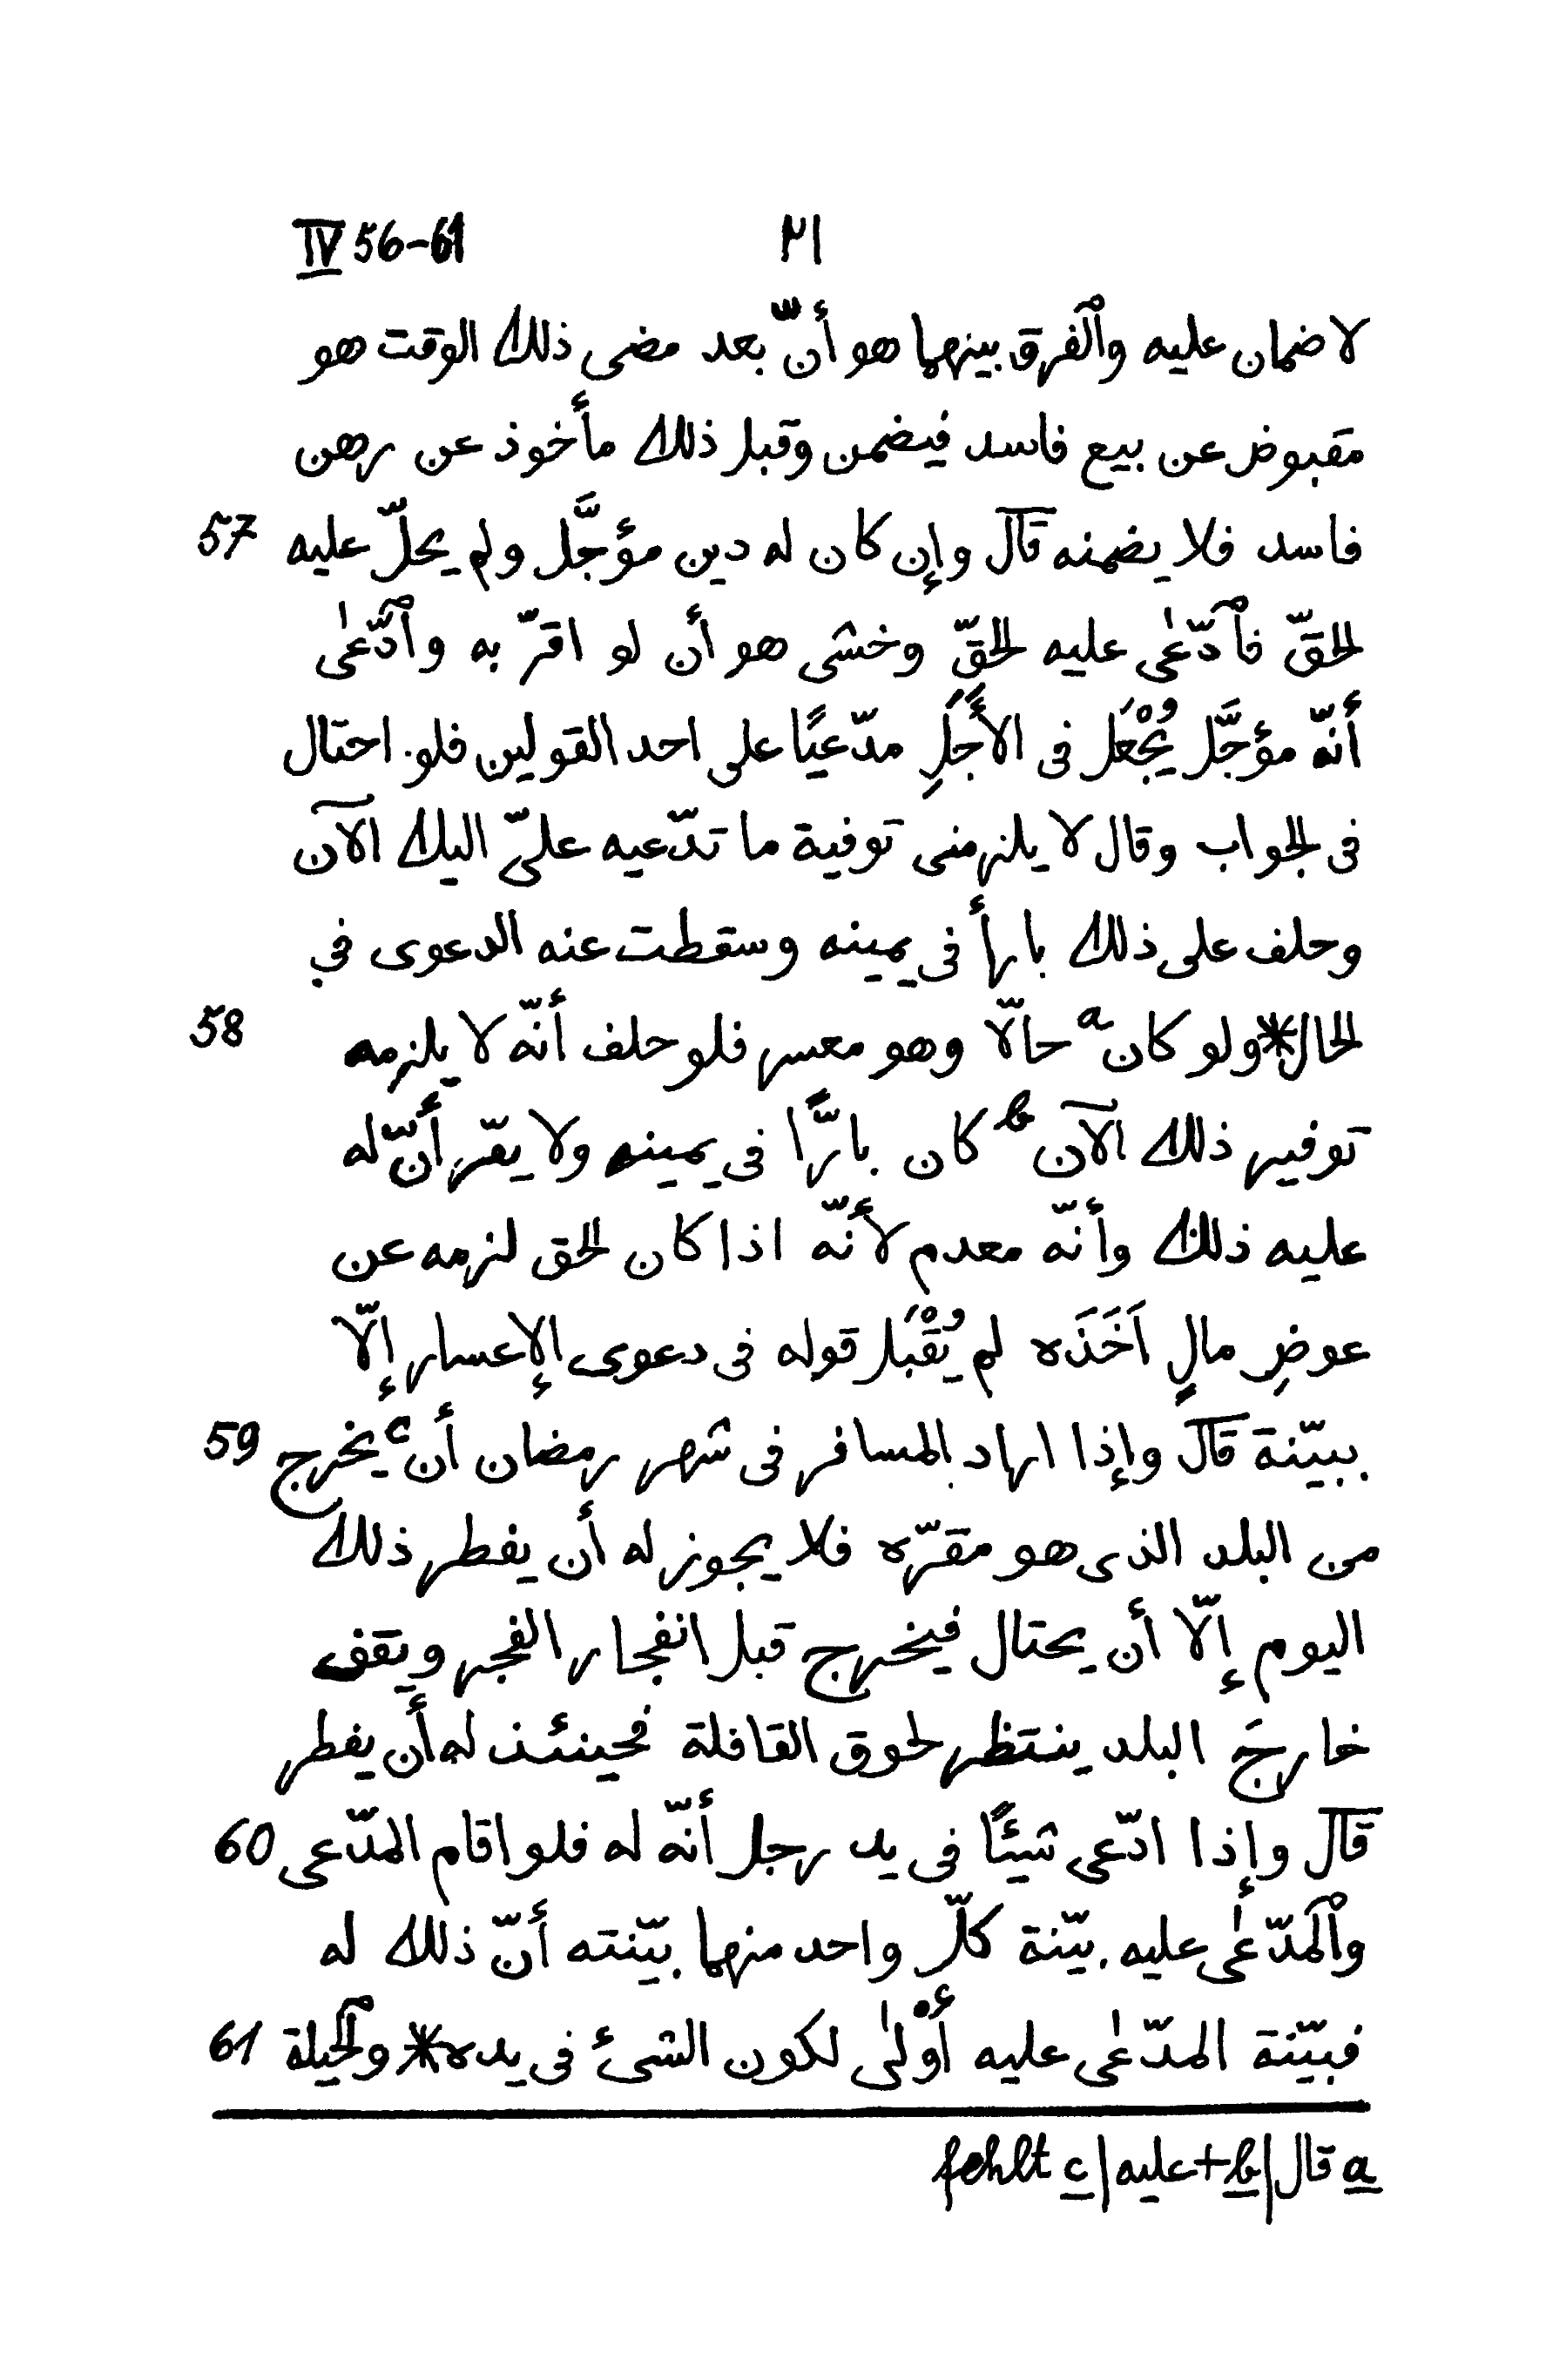 IV 56-61 ٢١
لا ضمان عليه وٱلفرق بينهما هو أنّ بعد مضى ذلك الوقت هو
مقبوض عن بيع فاسد فيضمن وقبل ذلك مأخوذ عن رهن
فاسد فلا يضمنه قال وإن كان له دين مؤجَّل ولم يحلّ عليه 57
لحقّ فٱدّعٰى عليه لحقّ وخشى هو أن لو اقرّ به وٱدّعٰى
أنّه مؤجَّل يُجْعَل فى الأَجَلِ مدّعيًا على احد القولين فلو احتال
فى لجواب وقال لا يلزمنى توفية ما تدّعيه علىّ اليك الآن
وحلف على ذلك بارأ فى يمينه وسقطت عنه الدعوى في
لحال* ولو كان a حالّا وهو معسر فلو حلف أنّه لا يلزمه 58
توفير ذلك الآن b كان بارًّا فى يمينه ولا يقرّ أنّ له
عليه ذلك وأنّه معدم لأنّه اذا كان لحق لزمه عن
عوضِ مالٍ اَخَذَه لم يُقْبَل قوله فى دعوى الإعسار إلّا
ببيّنة قال وإذا اراد المسافر فى شهر رمضان أن c يخرج 59
من البلد الذى هو مقرّه فلا يجوز له أن يفطر ذلك
اليوم إلّا أن يحتال فيخرج قبل انفجار الفجر ويقف
خارجَ البلد ينتظر لحوق القافلة فحينئذ له أن يفطر
قال وإذا ادّعى شيئًا فى يد رجل أنّه له فلو اقام المدّعى 60
وٱلمدّعٰى عليه بيّنة كلّ واحد منهما بيّنته أنّ ذلك له
فبيّنة المدّعٰى عليه أوْلٰى لكون الشىء فى يده* وٱلحيلة 61
a قال | b + عليه | c fehlt